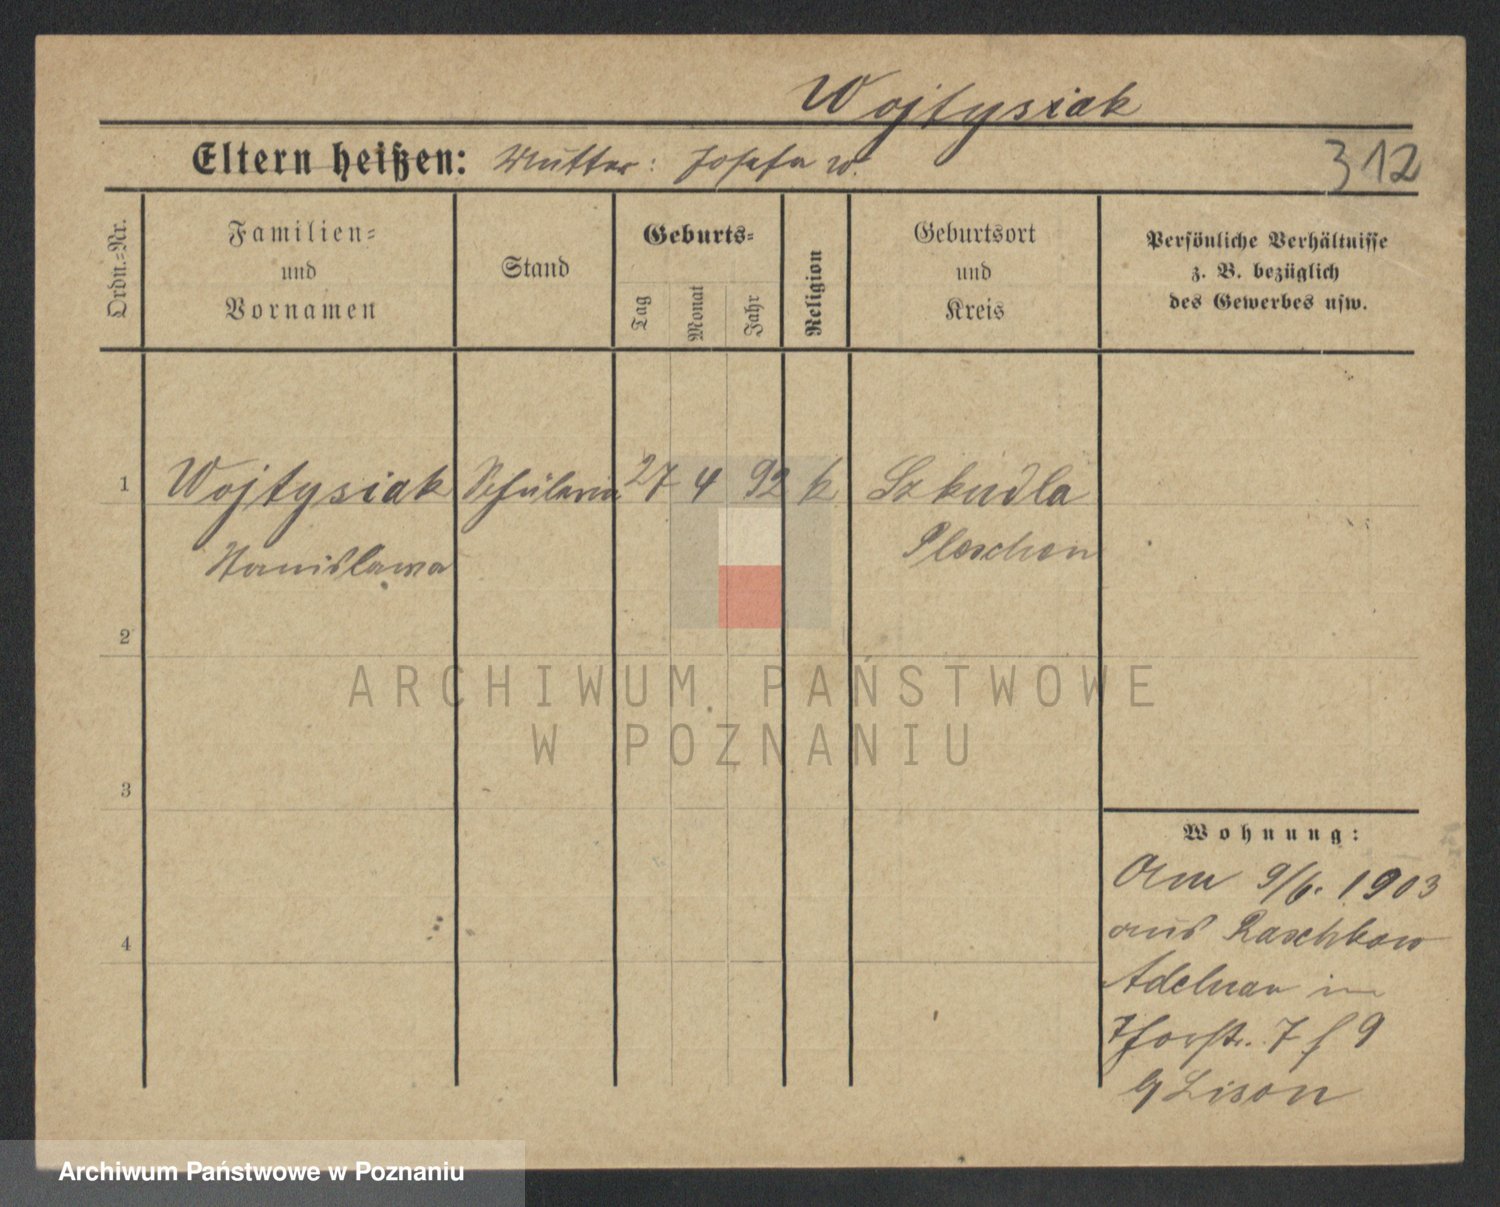 Wojtysiak
Eltern heißen: Mutter: Josefa w.
312
Ordn.-Nr.
Familien-
und
Vornamen
Stand
Geburts-
Tag
Monat
Jahr
Religion
Geburtsort
und
Kreis
Persönliche Verhältnisse
z. B. bezüglich
des Gewerbes usw.
1 Wojtysiak Schülerin 27 4 92 k Szkudla
Stanislawa Pleschen
2
ARCHIWUM PAŃSTWOWE
W POZNANIU
3
Wohnung:
Am 9/6. 1903
4
aus Raschkow
Adelnau in
Thorstr. 7 9
Lison
Archiwum Państwowe w Poznaniu